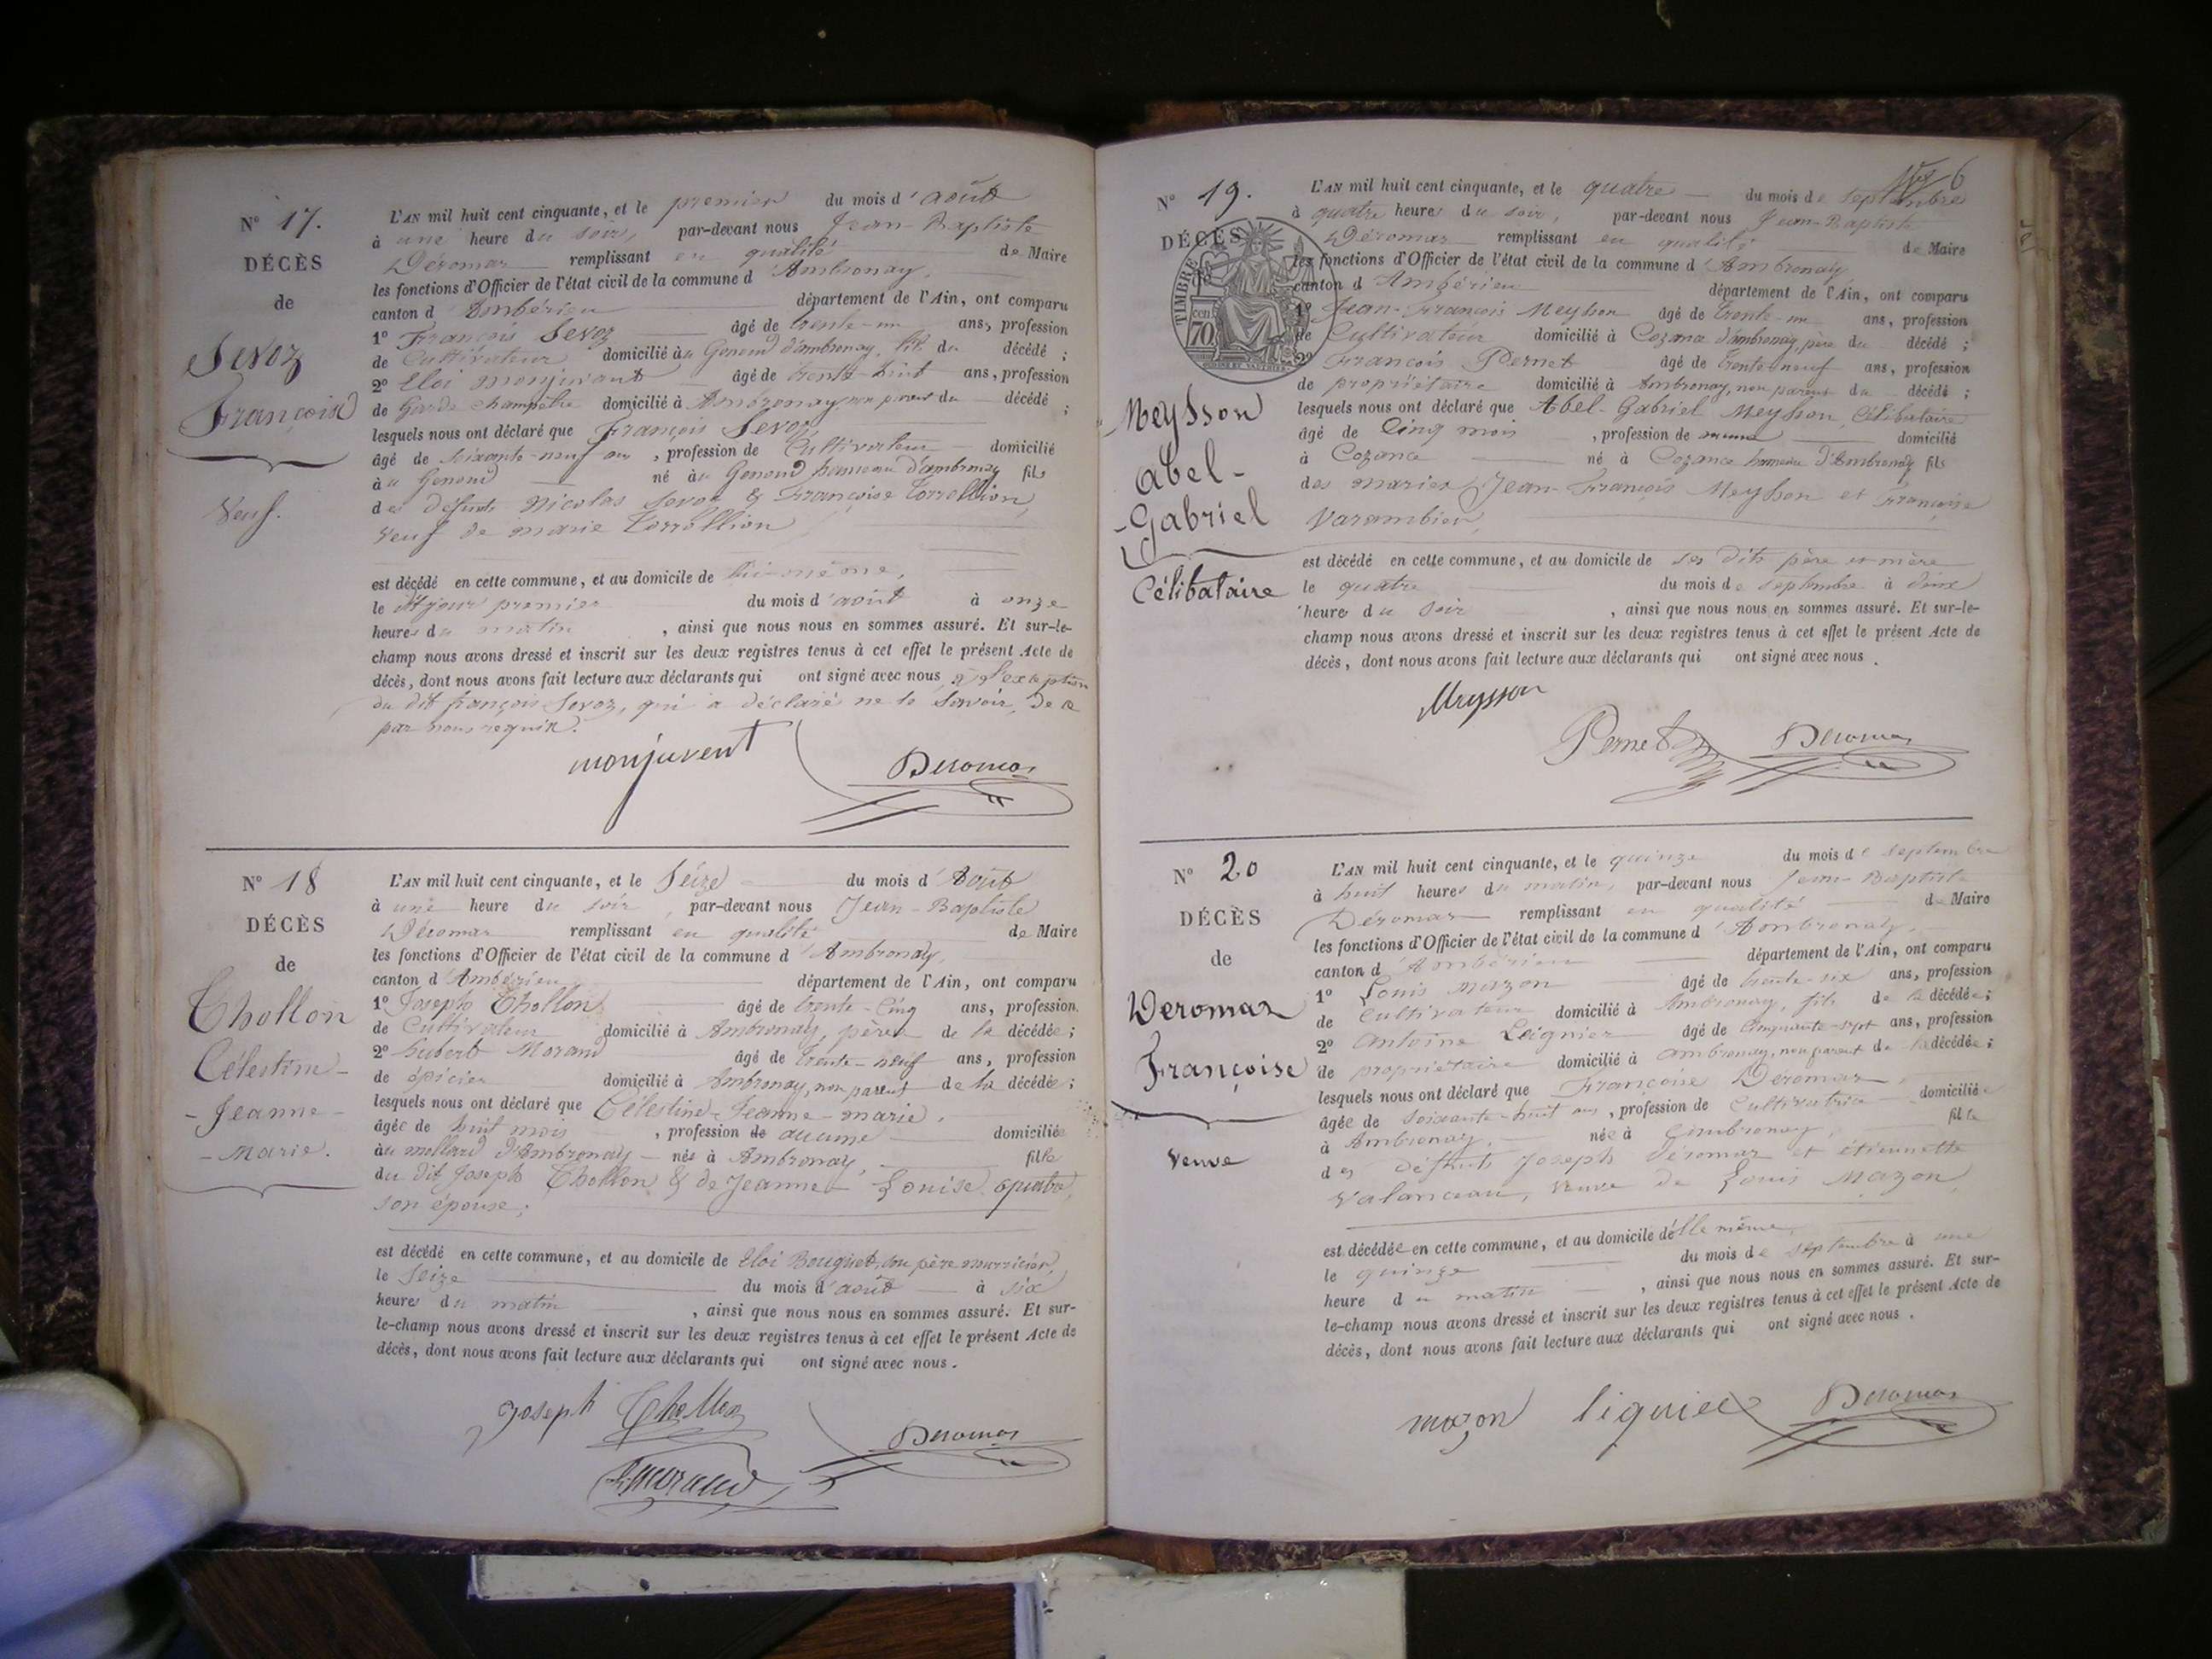 N° 17.
DÉCÈS
de
Sevoz
François
Veuf.
L'AN mil huit cent cinquante, et le premier du mois d'août
à une heure du soir, par-devant nous Jean-Baptiste
Déromas remplissant en qualité de Maire
les fonctions d'Officier de l'état civil de la commune d'Ambronay,
canton d'Ambérieu département de l'Ain, ont comparu
1° François Sevoz âgé de trente-un ans, profession
de Cultivateur domicilié au Genoud d'ambronay, fils du décédé ;
2° Eloi monjuvant âgé de trente-huit ans, profession
de Garde champêtre domicilié à Ambronay, non parent du décédé ;
lesquels nous ont déclaré que François Sevoz,
âgé de soixante-neuf ans, profession de Cultivateur domicilié
à u Genoud né au Genoud hameau d'ambronay fils
des défunts Nicolas Sevoz & Françoise
veuf de marie
est décédé en cette commune, et au domicile de lui-même,
le dit jour premier du mois d'août à onze
heures du matin, ainsi que nous nous en sommes assuré. Et sur-le-
champ nous avons dressé et inscrit sur les deux registres tenus à cet effet le présent Acte de
décès, dont nous avons fait lecture aux déclarants qui ont signé avec nous, à l'exception
du dit françois Sevoz, qui a déclaré ne le savoir, de ce
par nous requis.
monjuvent Deromas
N° 18
DÉCÈS
de
Chollon
Célestine-
-Jeanne-
-Marie.
L'AN mil huit cent cinquante, et le Seize du mois d'Août
à une heure du soir, par-devant nous Jean-Baptiste
Déromas remplissant en qualité de Maire
les fonctions d'Officier de l'état civil de la commune d'Ambronay,
canton d'Ambérieu, département de l'Ain, ont comparu
1° Joseph Chollon âgé de trente-cinq ans, profession
de Cultivateur domicilié à Ambronay, père de la décédée ;
2° hubert Morand âgé de trente-neuf ans, profession
de épicier domicilié à Ambronay, non parent de la décédée ;
lesquels nous ont déclaré que Célestine-Jeanne-marie,
âgée de huit mois, profession de aucune domiciliée
au mollard d'Ambronay née à Ambronay, fille
du dit Joseph Chollon & de Jeanne-Louise
son épouse,
est décédé en cette commune, et au domicile de Eloi Bouquet, son père nourricier,
le seize du mois d'août à six
heures du matin, ainsi que nous nous en sommes assuré. Et sur-
le-champ nous avons dressé et inscrit sur les deux registres tenus à cet effet le présent Acte de
décès, dont nous avons fait lecture aux déclarants qui ont signé avec nous.
Joseph Chollon Deromas
hmorand
6
N° 19.
DÉCÈS
de
TIMBRE
cen
70
Meysson
Abel-
-Gabriel
Célibataire
L'AN mil huit cent cinquante, et le quatre du mois de septembre
à quatre heures du soir, par-devant nous Jean-Baptiste
Déromas remplissant en qualité de Maire
les fonctions d'Officier de l'état civil de la commune d'Ambronay
canton d'Ambérieu département de l'Ain, ont comparu
1° Jean-François Meysson âgé de trente-un ans, profession
de Cultivateur domicilié à Cozance d'ambronay, père du décédé ;
2° François Pernet âgé de trente-neuf ans, profession
de propriétaire domicilié à Ambronay, non parent du décédé ;
lesquels nous ont déclaré que Abel-Gabriel Meysson, Célibataire
âgé de Cinq mois, profession de domicilié
à Cozance né à Cozance hameau d'Ambronay fils
des mariés Jean-François Meysson et Françoise
Varambier,
est décédé en cette commune, et au domicile de ses dits père et mère
le quatre du mois de septembre à deux
heures du soir, ainsi que nous nous en sommes assuré. Et sur-le-
champ nous avons dressé et inscrit sur les deux registres tenus à cet effet le présent Acte de
décès, dont nous avons fait lecture aux déclarants qui ont signé avec nous.
Meysson
Pernet Deromas
N° 20
DÉCÈS
de
Deromas
Françoise
Veuve
L'AN mil huit cent cinquante, et le quinze du mois de septembre
à huit heures du matin, par-devant nous Jean-Baptiste
Déromas remplissant en qualité de Maire
les fonctions d'Officier de l'état civil de la commune d'Ambronay,
canton d'Ambérieu département de l'Ain, ont comparu
1° Louis Mazon âgé de trente-six ans, profession
de Cultivateur domicilié à Ambronay, fils de la décédée ;
2° Antoine Liguier âgé de Cinquante-sept ans, profession
de propriétaire domicilié à ambronay, non parent de la décédée ;
lesquels nous ont déclaré que Françoise Deromas,
âgée de soixante-huit ans, profession de Cultivatrice domiciliée
à Ambronay, née à Ambronay, fille
des défunts Joseph Deromas et étiennette
, veuve de Louis Mazon,
est décédée en cette commune, et au domicile d'elle même,
le quinze du mois de septembre à une
heure du matin, ainsi que nous nous en sommes assuré. Et sur-
le-champ nous avons dressé et inscrit sur les deux registres tenus à cet effet le présent Acte de
décès, dont nous avons fait lecture aux déclarants qui ont signé avec nous.
mazon liguier Deromas